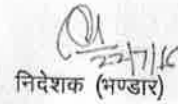 22/7/16
निदेशक (भण्डार)